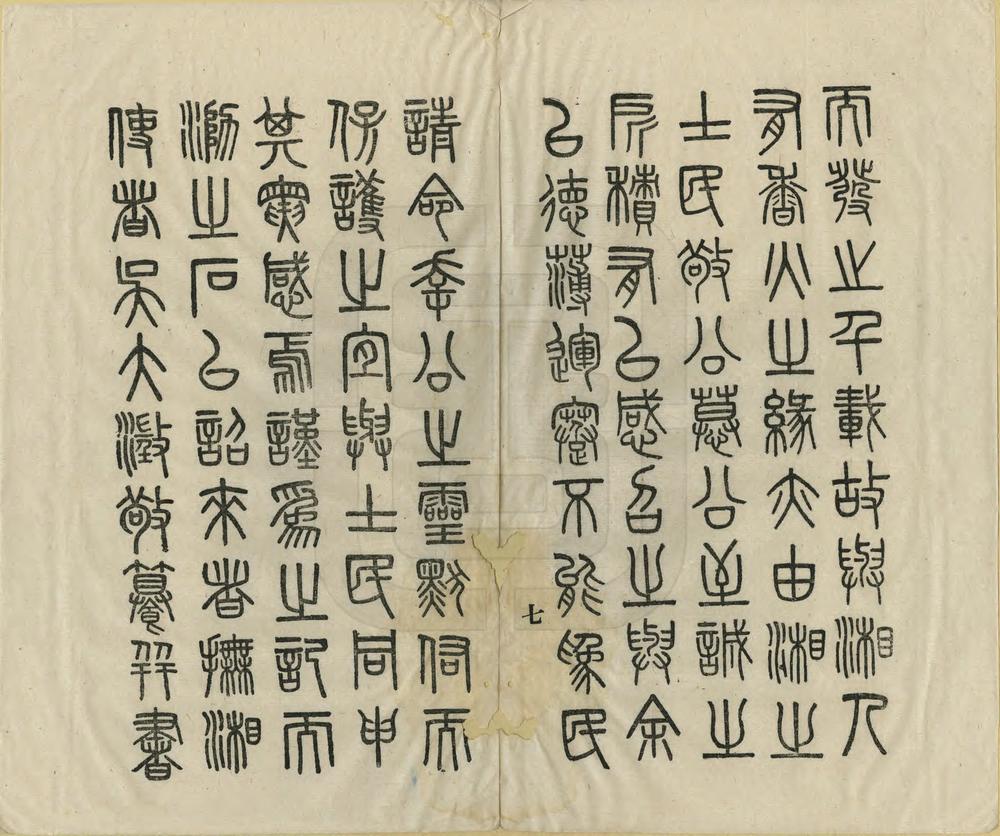 而發之千載故與湘人
有香火之緣亦由湘之
士民敬公慕公至誠之
所積有以感召之與余
以德薄運蹇不能為民
七
請命幸公之靈默伺而
保護之宜與士民同申
其感焉謹為之記而
泐之石以詔來者撫湘
使者吳大澂敬籑并書